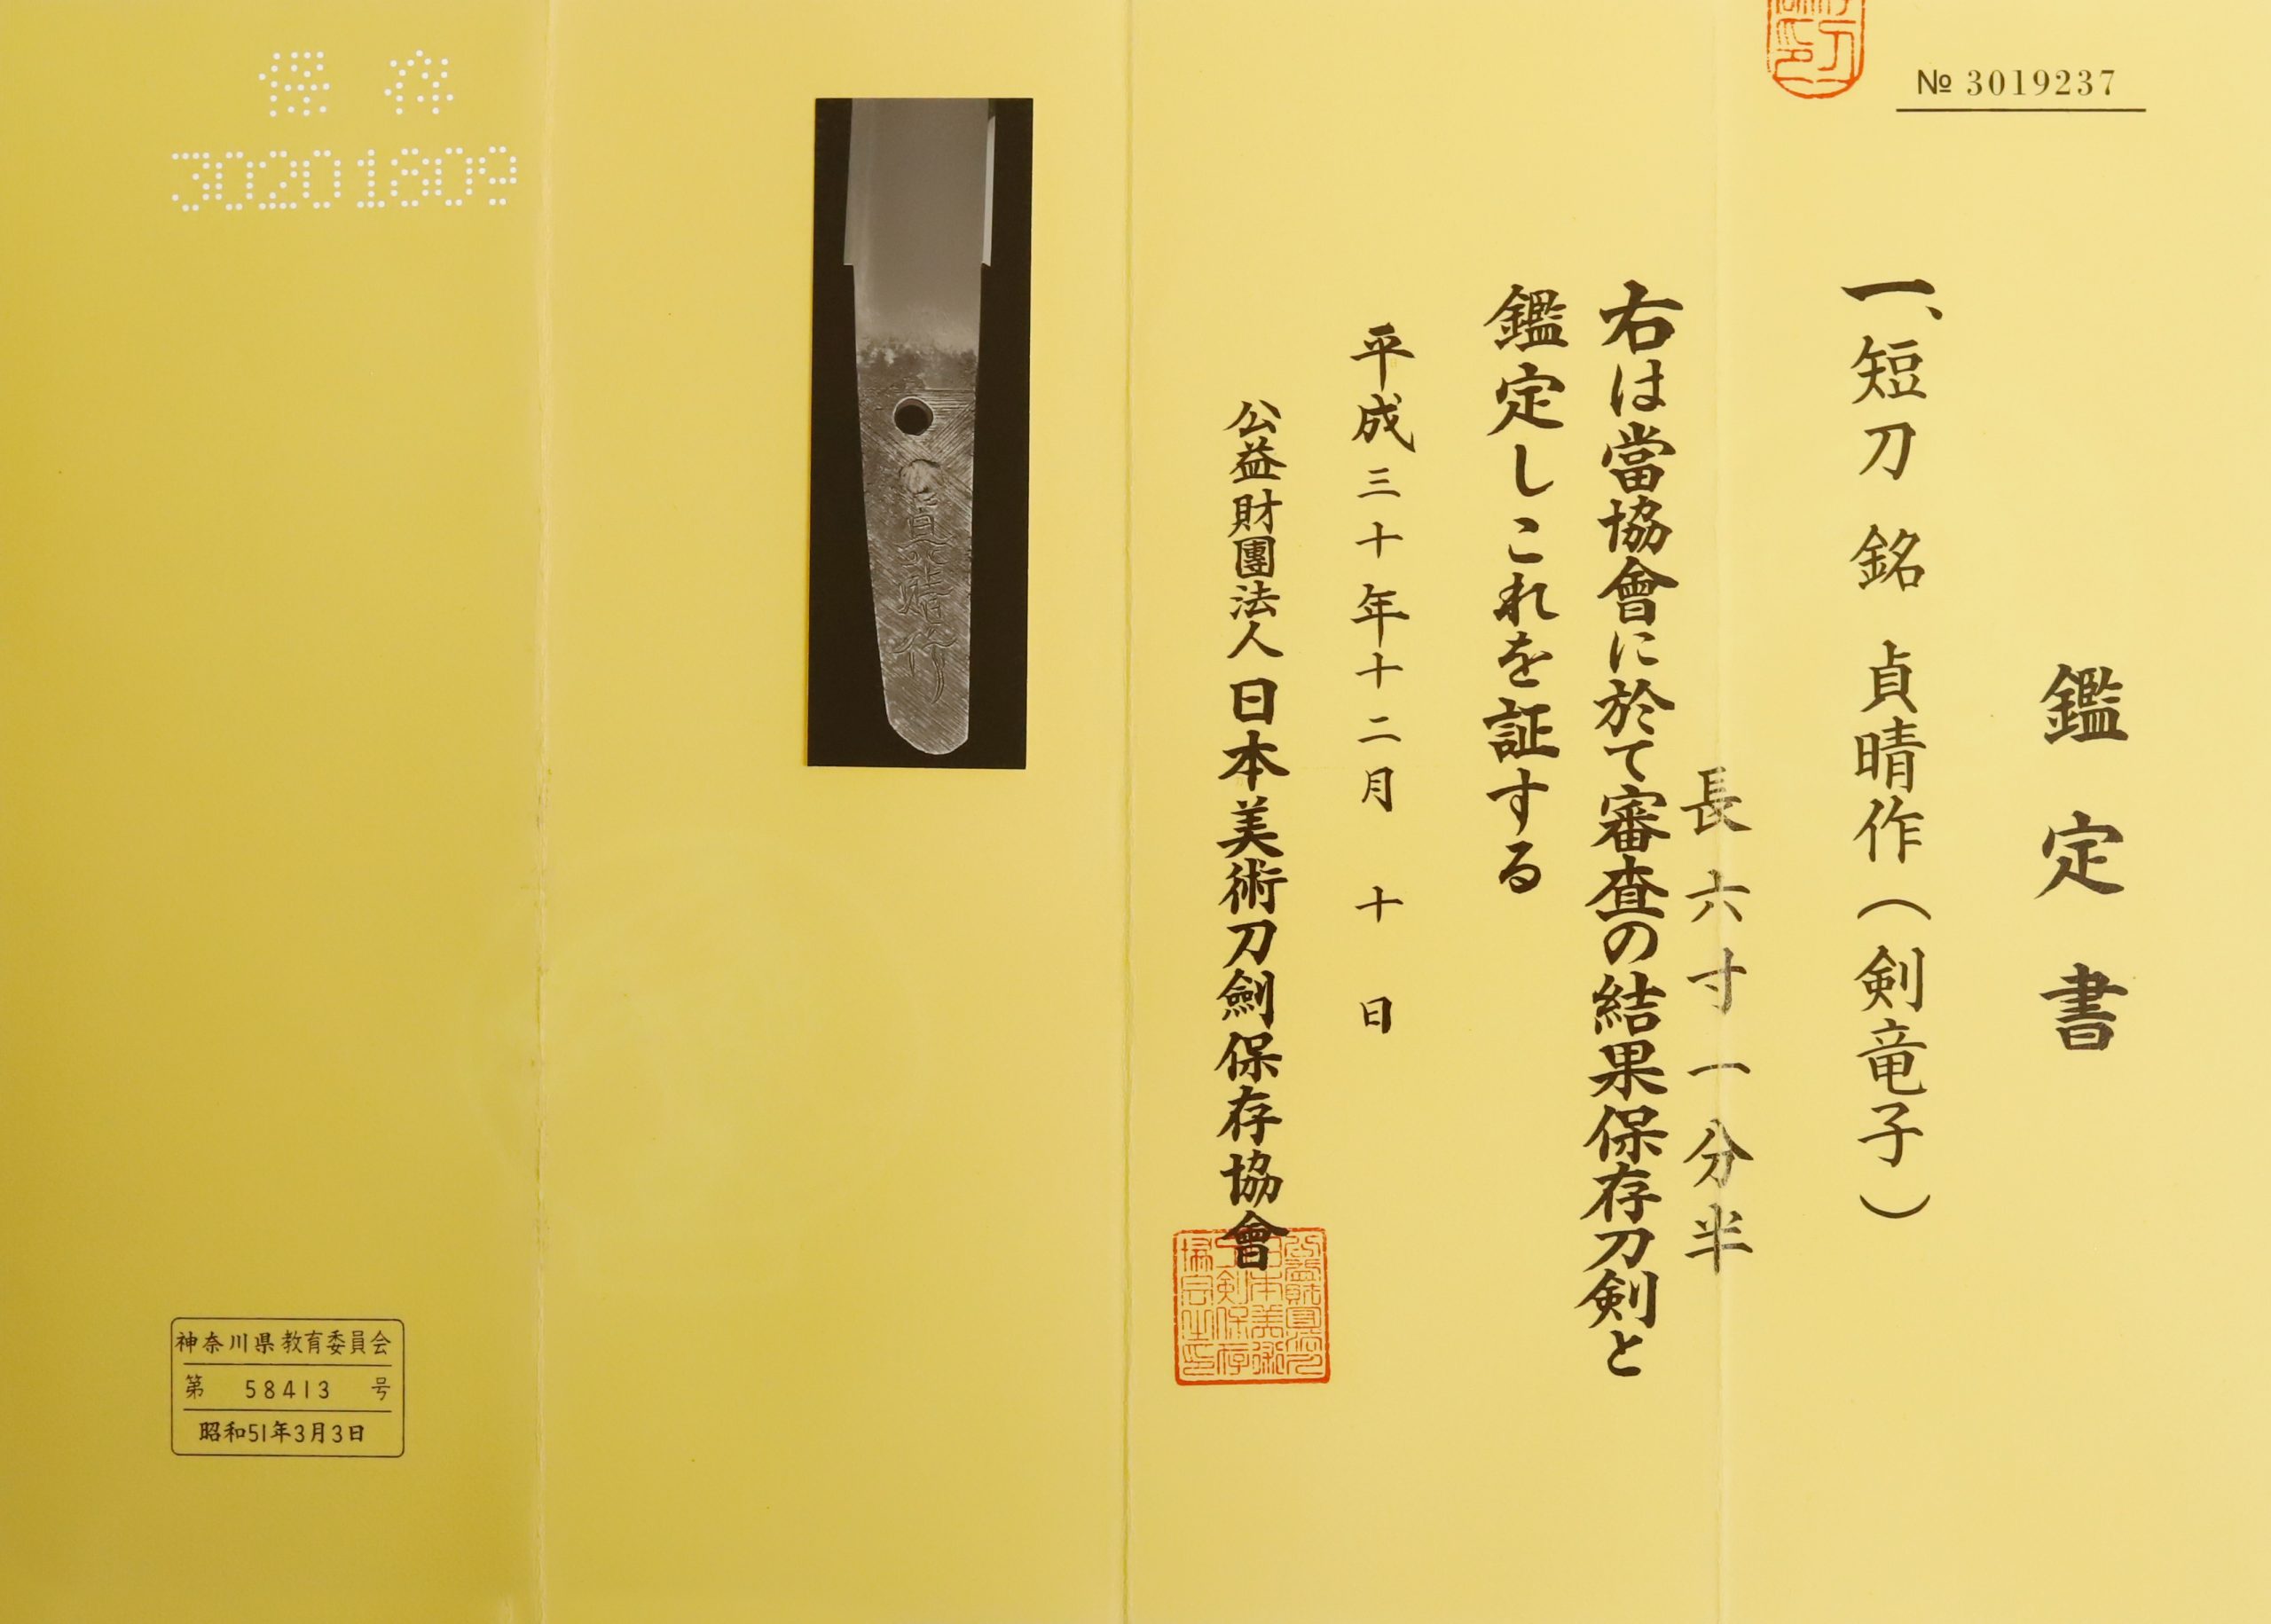 № 3019237
鑑定書
一、短刀 銘 貞晴作(剣竜子)
長六寸一分半
右は當協會に於て審査の結果保存刀剣と
鑑定しこれを証する
平成三十年十二月 十 日
公益財團法人日本美術刀劍保存協會
貞晴作
保存
30201809
神奈川県教育委員会
第 58413 号
昭和51年3月3日